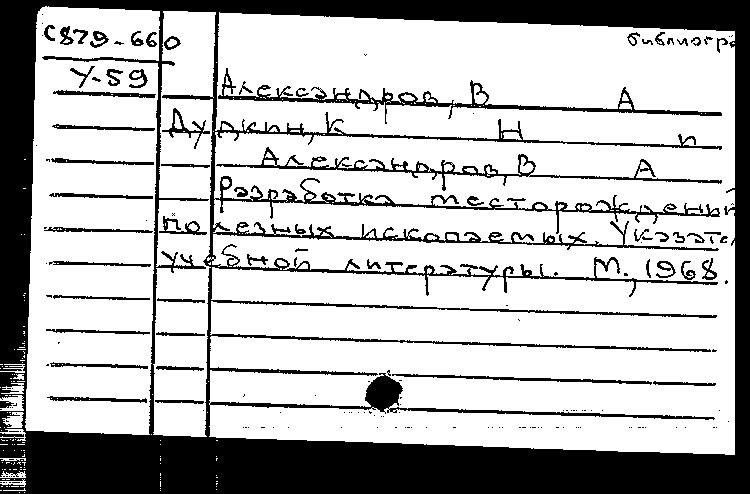 С879-660
библиогра
У-59
Александров, В А
Дудкин, К Н п
Александров, В А
Разработка месторождений
полезных ископаемых. Указате
учебной литературы. М., 1968.